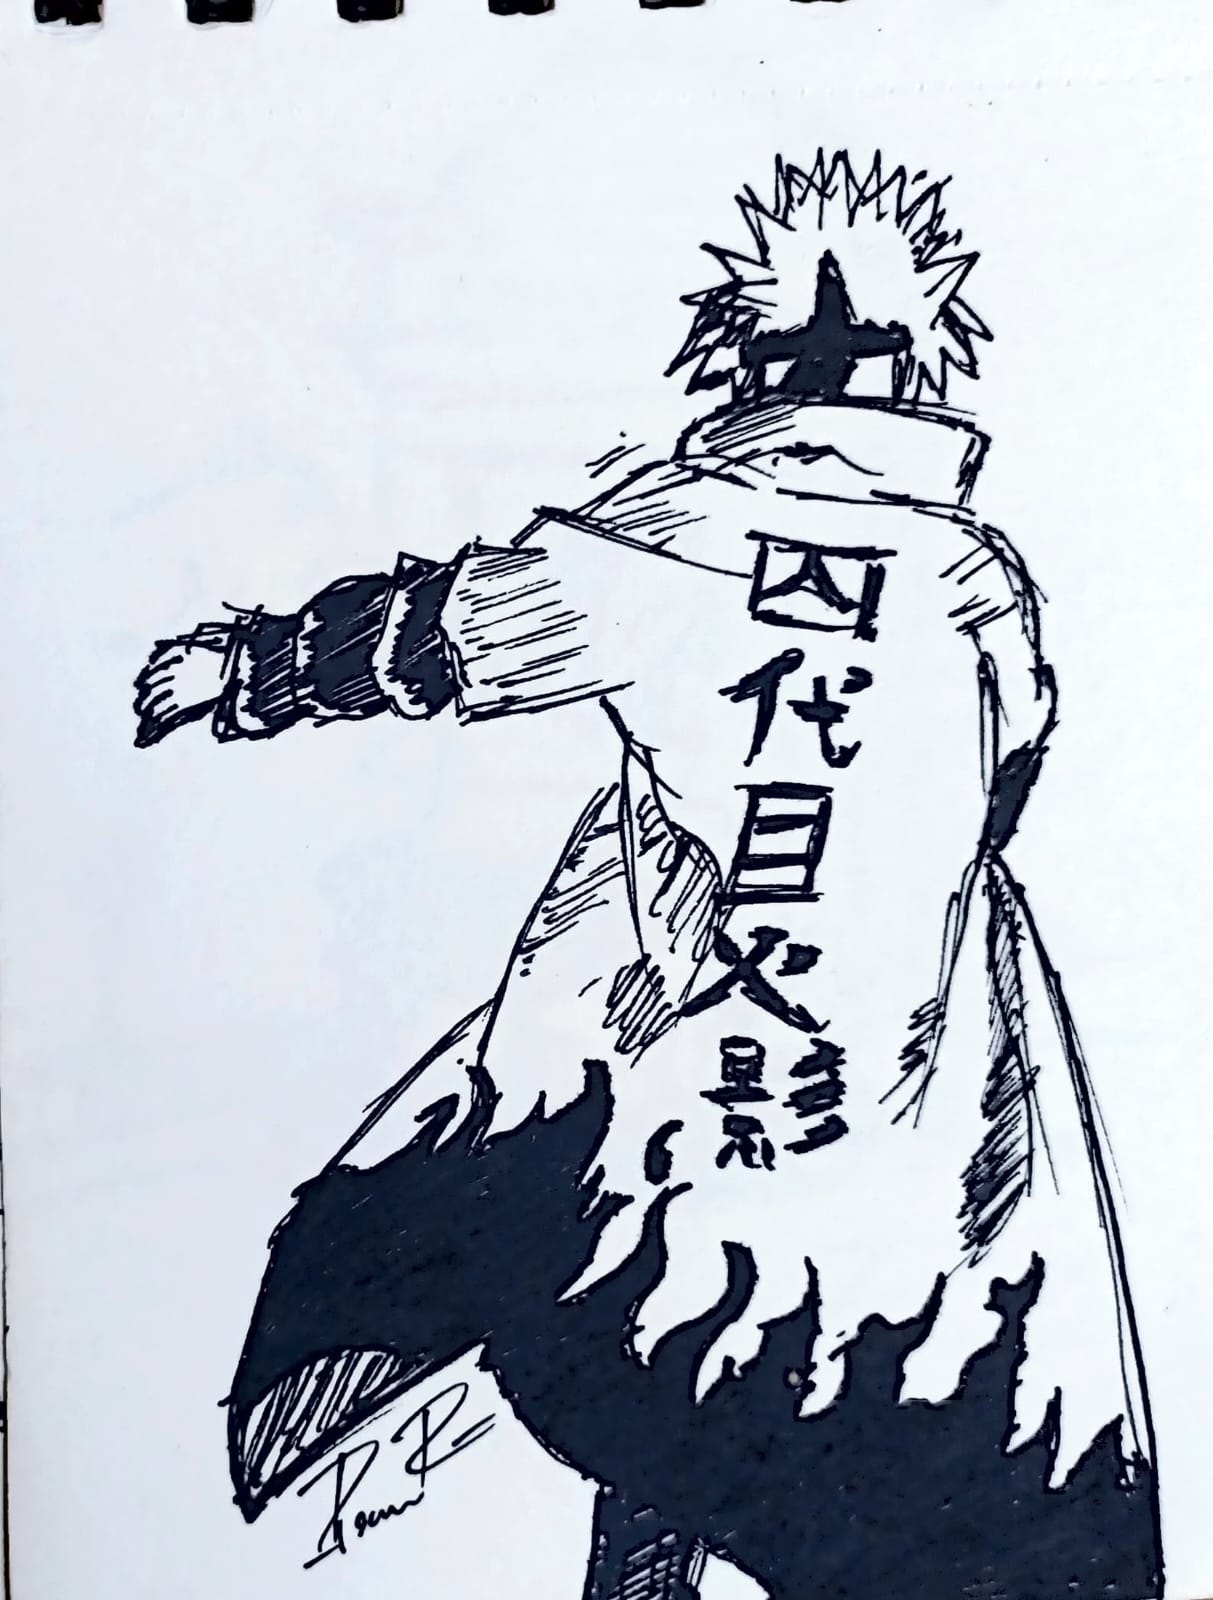 四
代
目
火
影